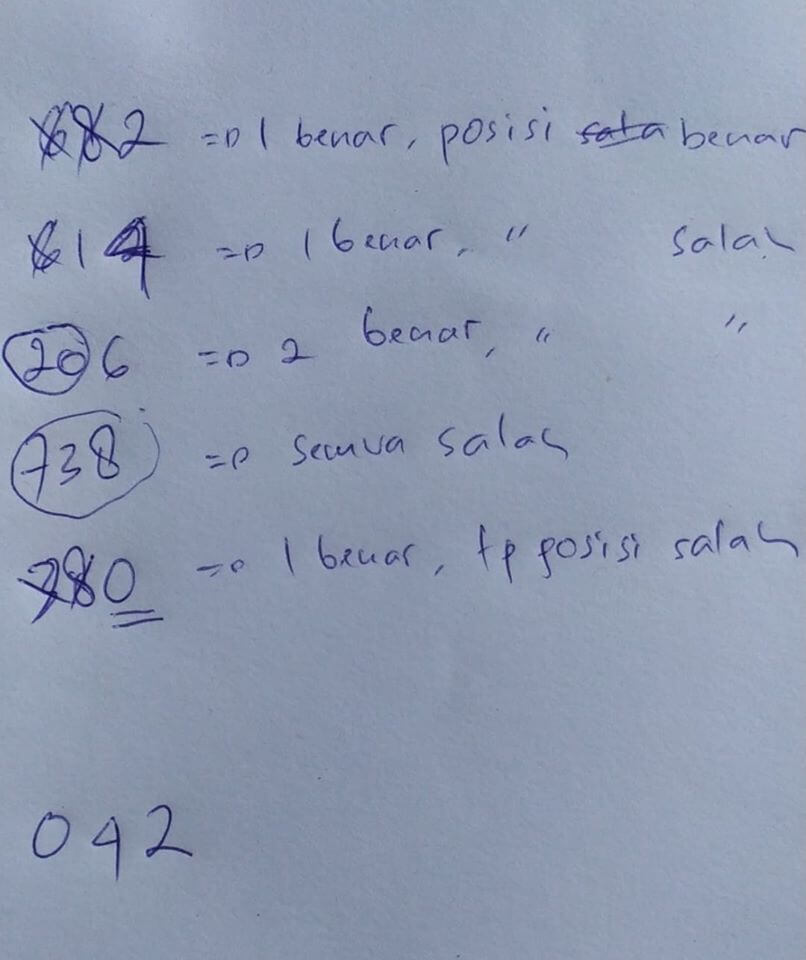 682 => 1 benar, posisi sala benar
614 => 1 benar, " salah
206 => 2 benar, " "
738 => semua salah
780 => 1 benar, tp posisi salah
042